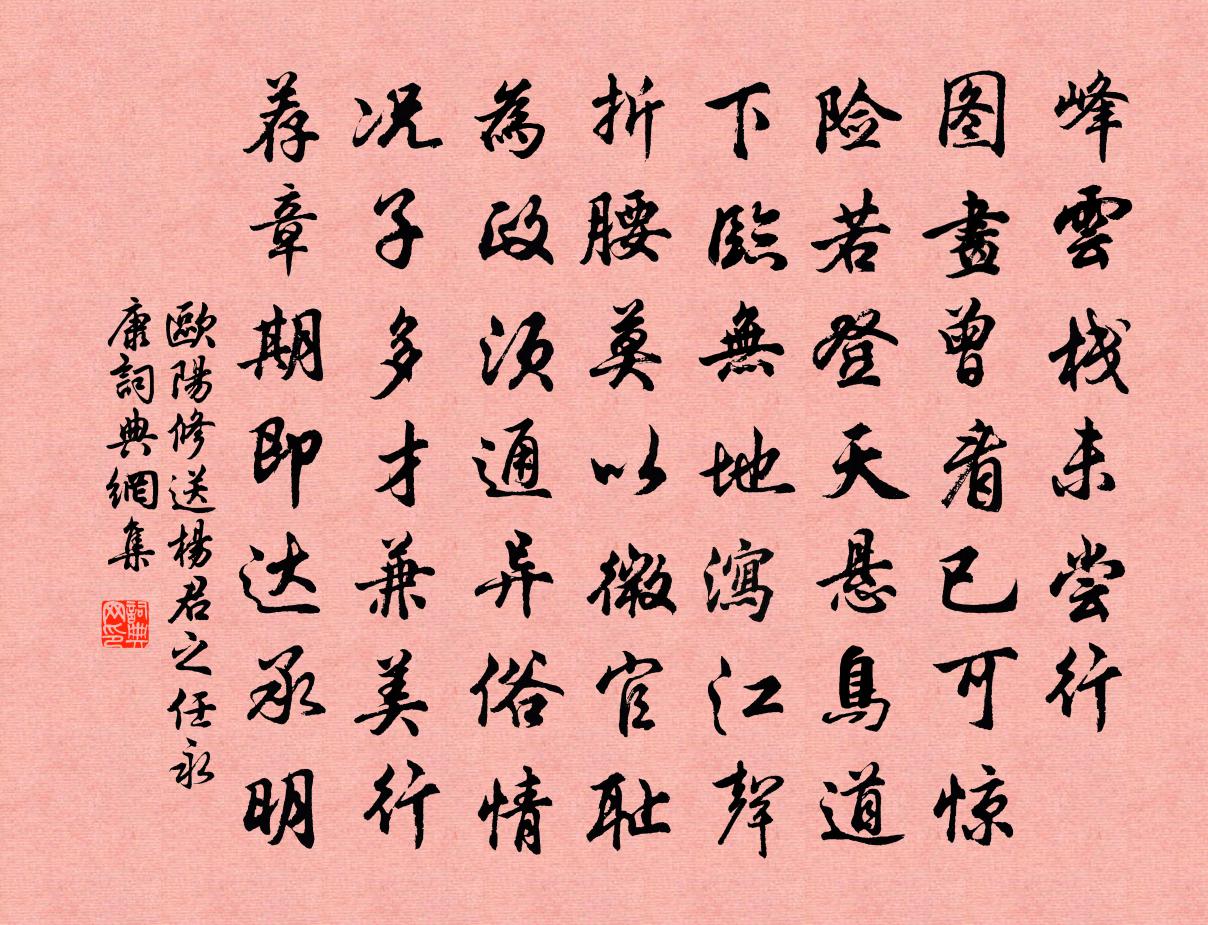 峰雲栈未尝行
图畫曾看已可惊
险若登天悬鳥道
下臨無地瀉江聲
折腰莫以微官耻
為政须通异俗情
况子多才兼美行
荐章期即达承明
歐陽修送楊君之任永
康詞典網集
詞典网印